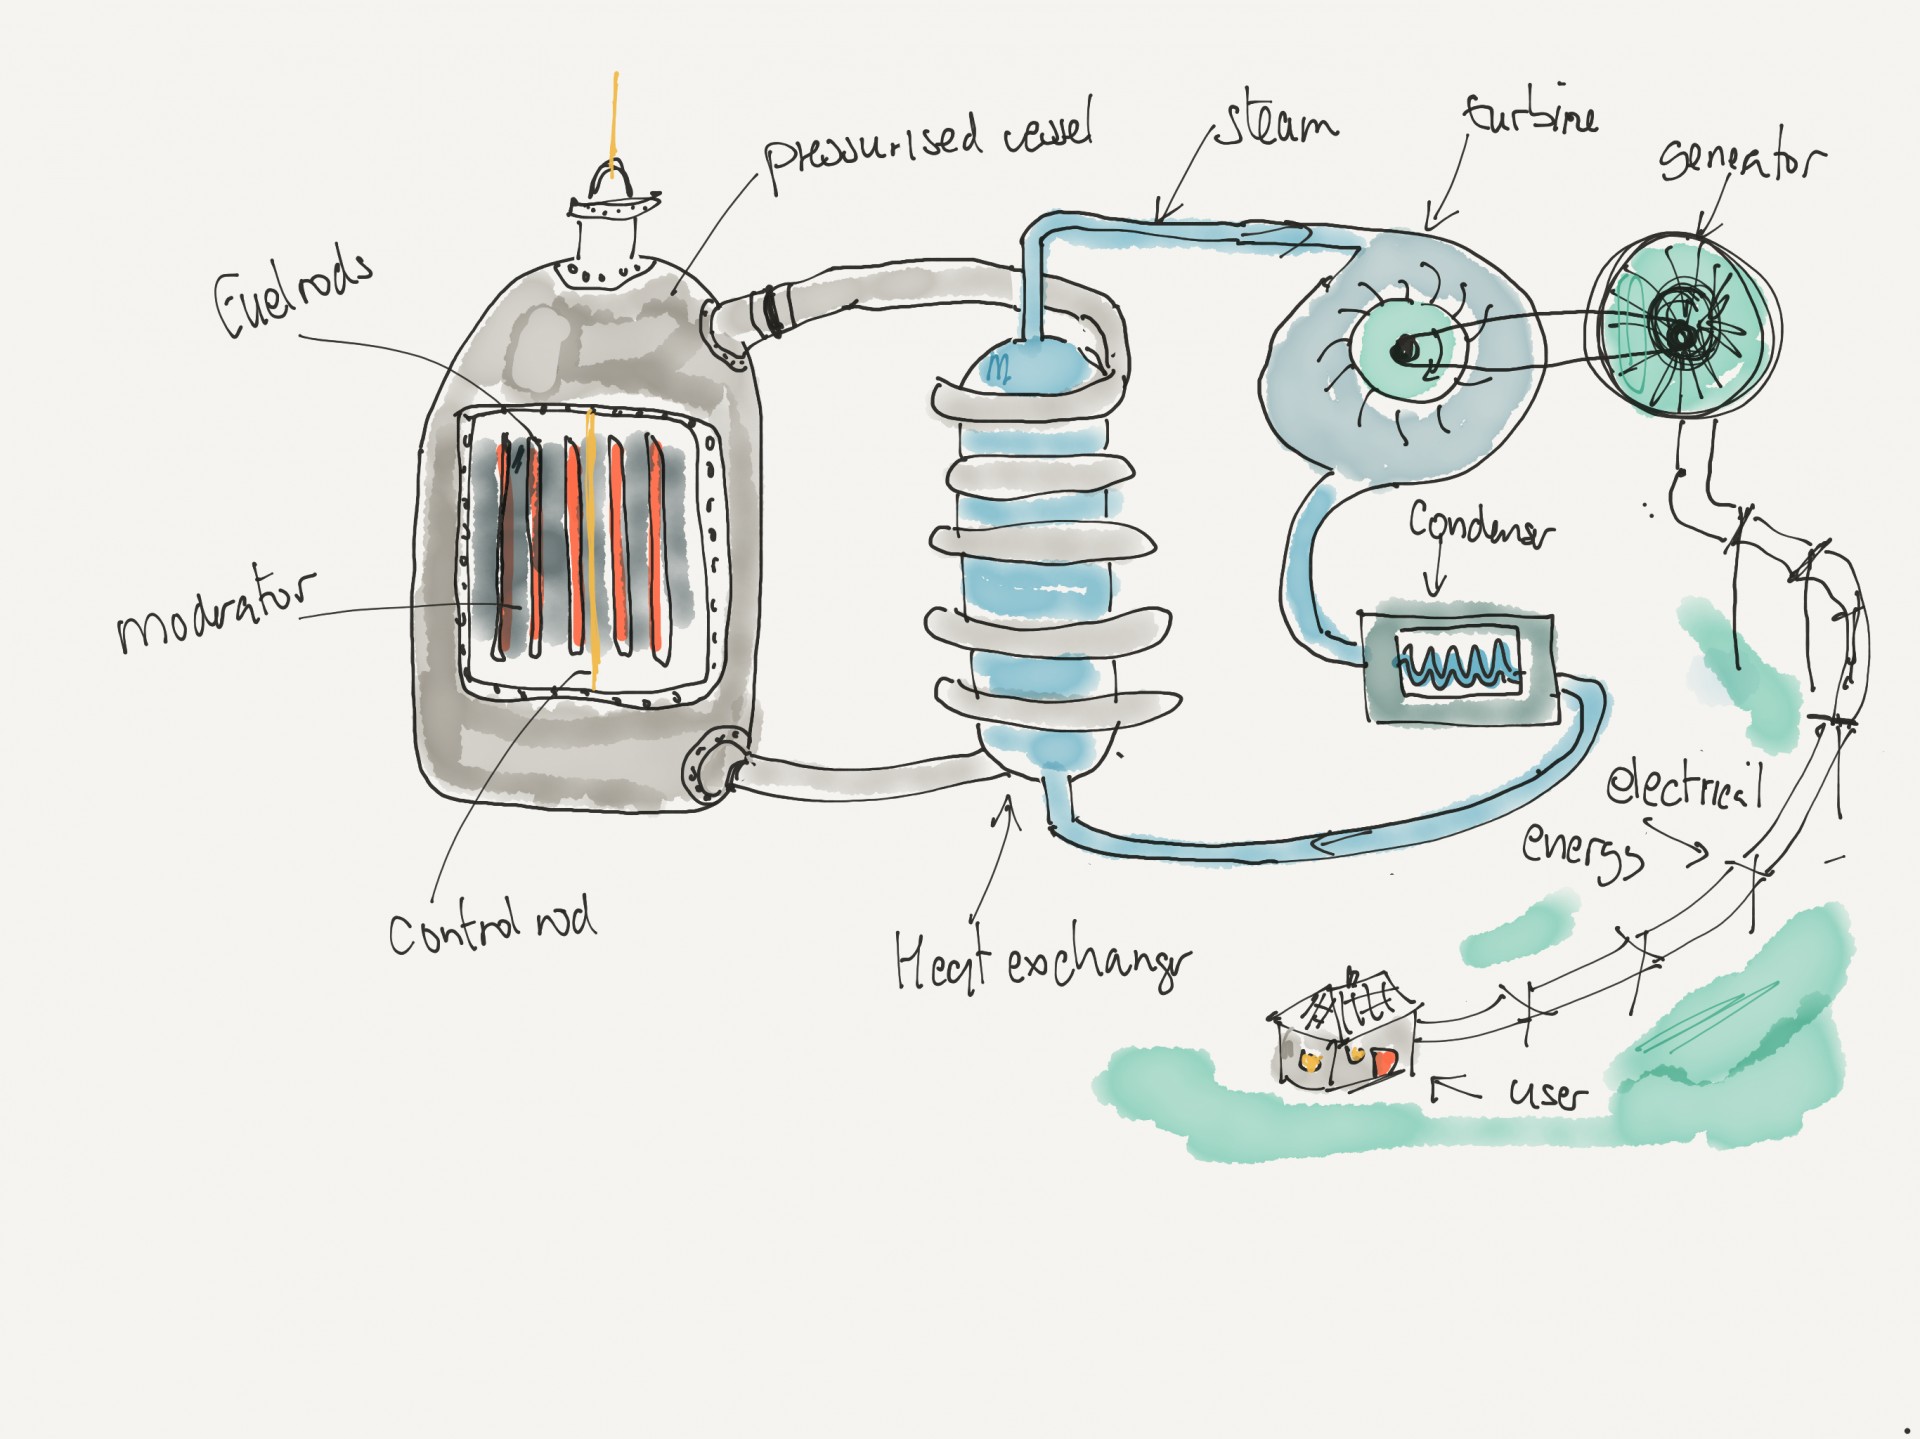 pressurised vessel
steam
turbine
generator
Fuelrods
moderator
Condenser
electrical
energy
Control rod
Heat exchanger
user